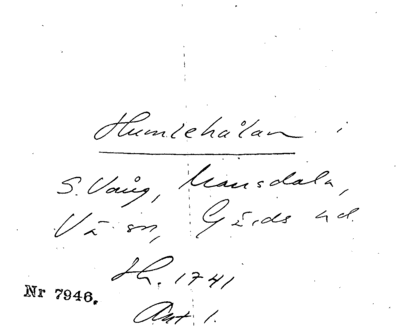 Humlehålan i
S. Vång, Mansdala,
Vä sn, Gärds hd.
Sk. 1741
Nr 7946.
Akt 1.